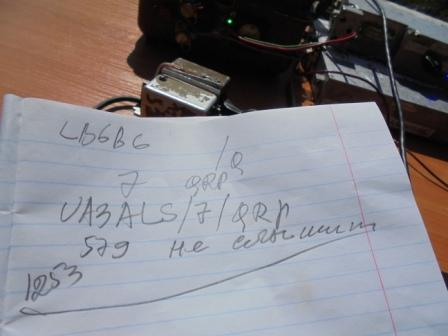 LB6B6
/Q
7 QRP
UA3ALS/7/QRP
579 не слышит
1253